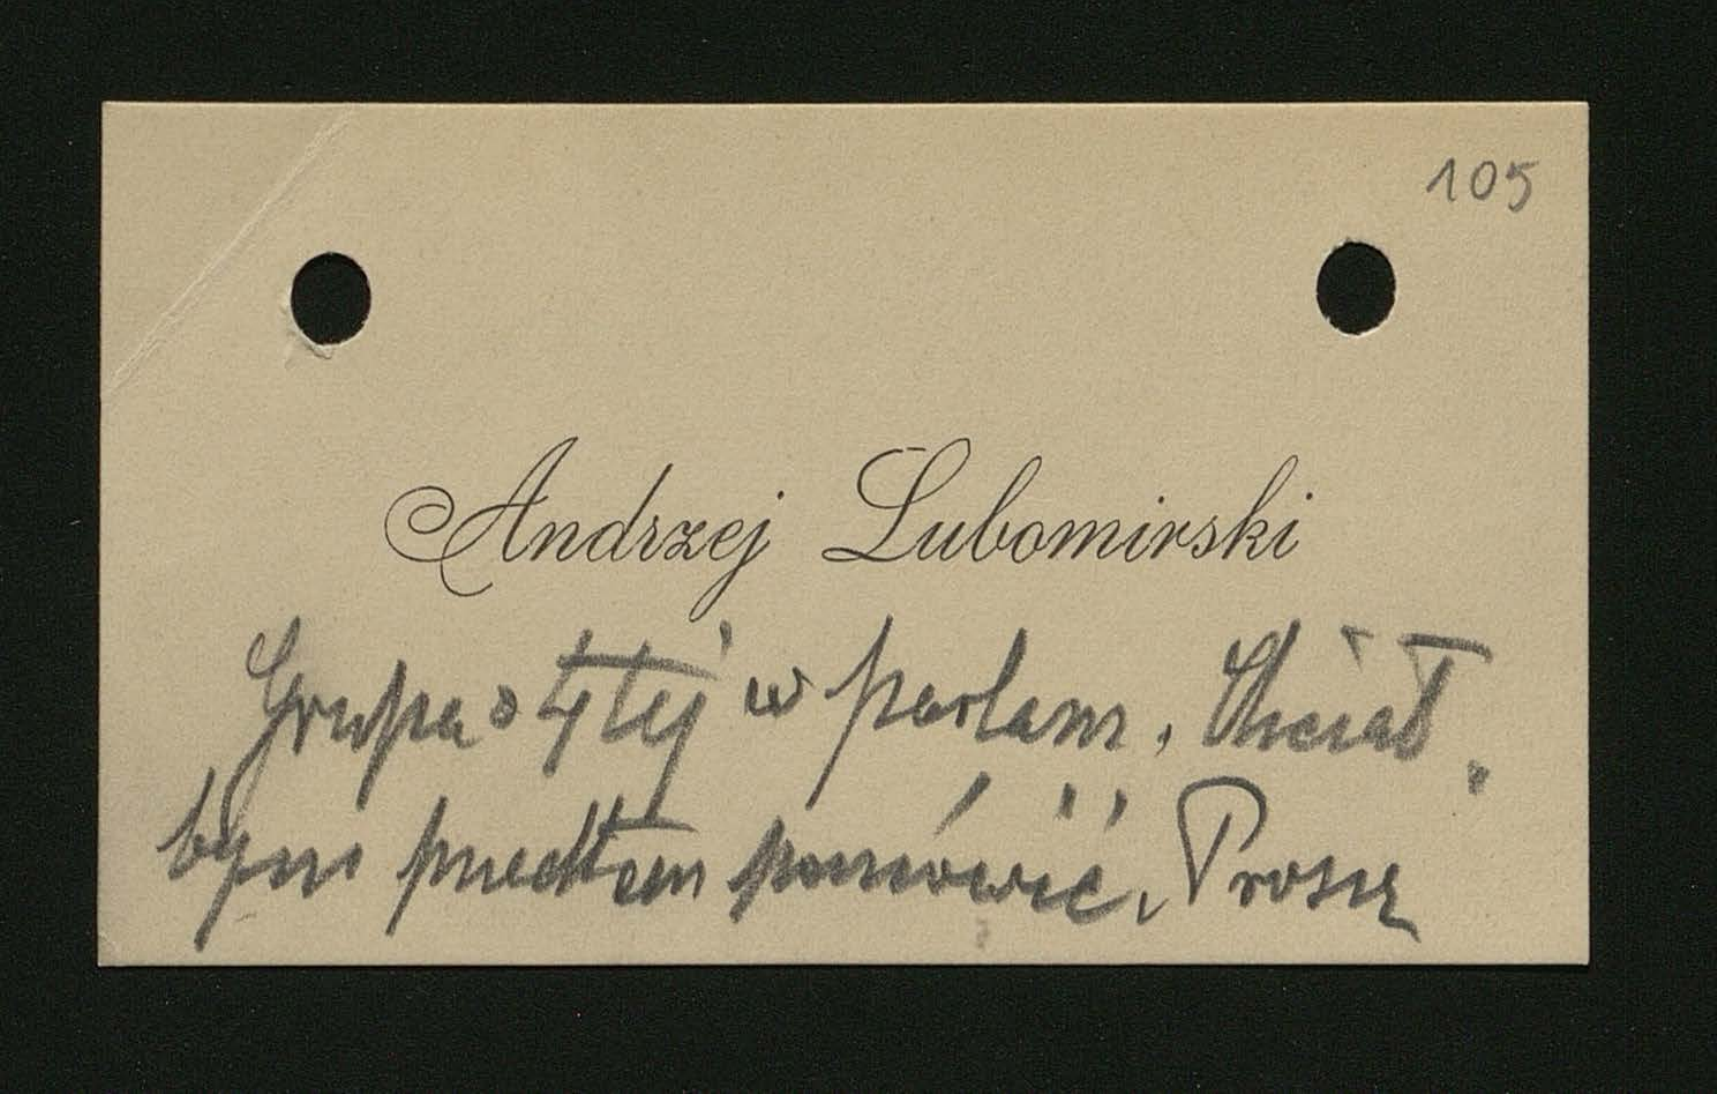 105
Andrzej Lubomirski
Grupa o 4tej w parlam. Chciał
bym przedtem pomówić. Proszę